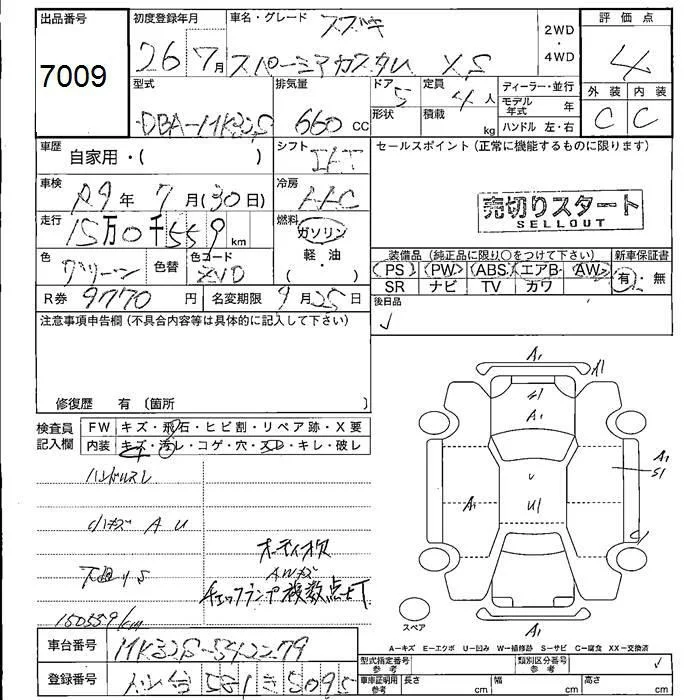 出品番号
7009
初度登録年月
26年7月
車名・グレード
スズキ
スペーシアカスタム XS
2WD
・
4WD
評価点
4
外装 内装
C C
型式
DBA-MK32S
排気量
660 CC
ドア
5
形状
定員
4人
積載
kg
ディーラー・並行
モデル年式 年
ハンドル 左・右
車歴
自家用・( )
シフト
車検
R9年 7月(30日)
冷房
AAC
走行
15万0千559 km
燃料
ガソリン
・
軽・油
( )
色
グリーン
色替
色コード
ZVD
R券 9770 円
名変期限 9月25日
セールスポイント(正常に機能するものに限ります)
売切りスタート
SELLOUT
装備品(純正品に限り○をつけて下さい)
PS PW ABS エアB AW
SR ナビ TV カワ
新車保証書
有・無
後日品
✓
注意事項申告欄(不具合内容等は具体的に記入して下さい)
修復歴 有 〔箇所 〕
検査員
記入欄
FW キズ・飛石・ヒビ割・リペア跡・X要
内装 キズ・汚レ・コゲ・穴・スレ・キレ・破レ
ハンドルスレ
小キズ A U
下廻りS
150559km
オーディオ欠
AWキズ
チェックランプ複数点灯
A1
A1
S1
A1
U
U1
A1
A1
S1
A1
スペア
A-キズ E-エクボ U-凹み W-補修跡 S-サビ C-腐食 XX-交換済
車台番号 MK32S-542279
登録番号 581 き 5095
型式指定番号
参考
類別区分番号
参考
✓
車庫証明用
参考
長さ cm
幅 cm
高さ cm